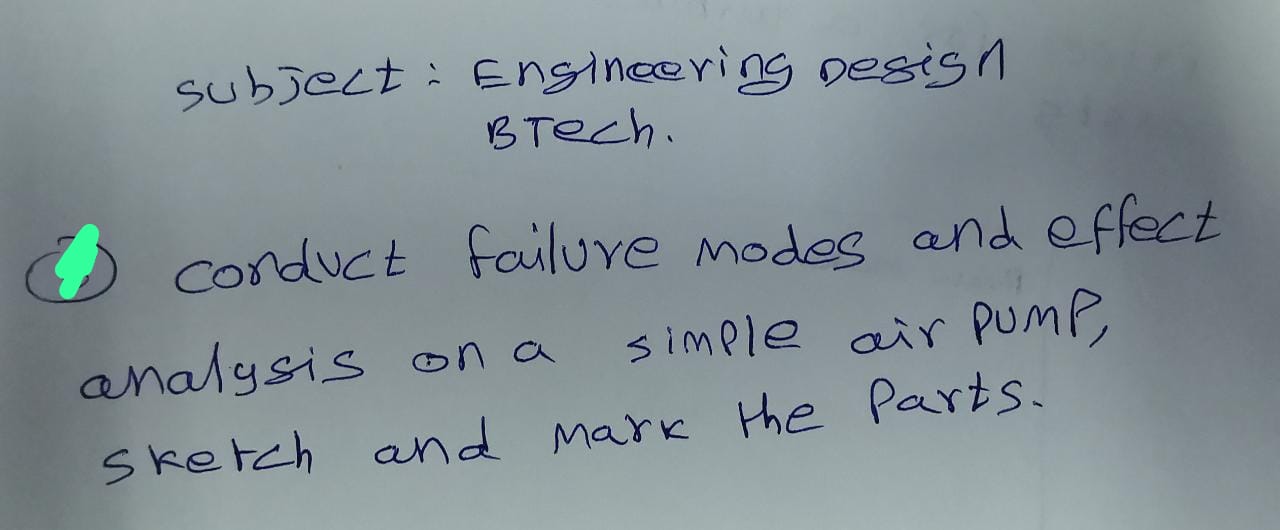 subject: Engineering Design
BTech.
conduct failure modes and effect
analysis on a simple air pump,
sketch and mark the parts.